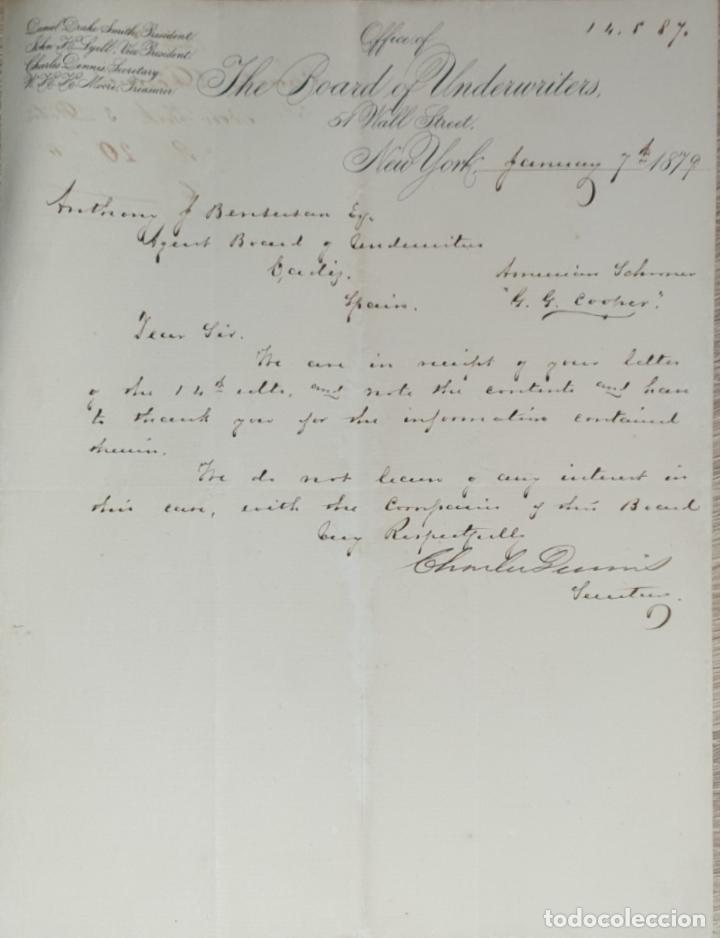 Daniel Drake Smith, President.
John H. Lyell, Vice President.
Charles Dennis, Secretary.
W. H. H. Moore, Treasurer.
Office of
The Board of Underwriters,
51 Wall Street,
New York, January 7th 1879
Anthony J Bensusan Esq.
Agent Board of Underwriters
Cadiz.
Spain.
American Schooner
"G. G. Cooper".
Dear Sir.
We are in receipt of your letter
of the 14th ulto, and note the contents and have
to thank you for the information contained
therein.
We do not learn of any interest in
this case, with the Companies of this Board
Very Respectfully
Charles Dennis
Secretary.
todocoleccion